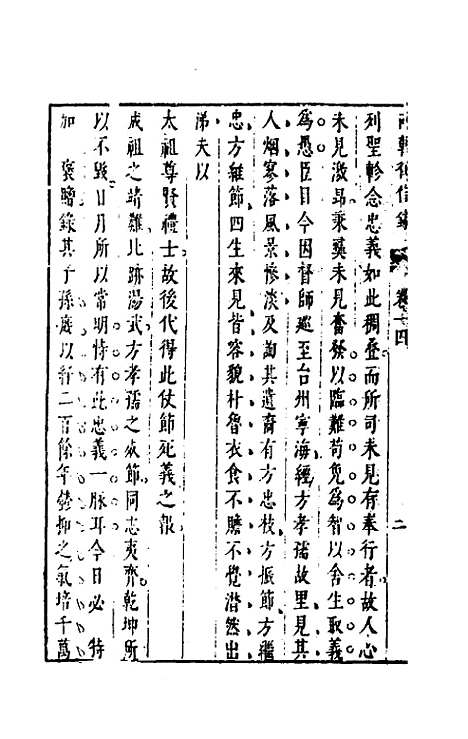 卷十四
二
列聖軫念忠義如此稠疊而所司未見有奉行者故人心
未見激昂秉彝未見奮發以臨難苟免為智以舍生取義
為愚臣目今因督師巡至台州寧海經方孝孺故里見其
人烟寥落風景慘淡及詢其遺裔有方忠枝方振節方繼
忠方維節四生來見皆容貌朴魯衣食不贍不覺潸然出
涕夫以
太祖尊賢禮士故後代得此仗節死義之報
成祖之靖難比跡湯武方孝孺之死節同志夷齊乾坤所
以不毀日月所以常明恃有此忠義一脈耳今日必 特
加 褒贈錄其子孫庶以紓二百餘年鬱抑之氣培千萬